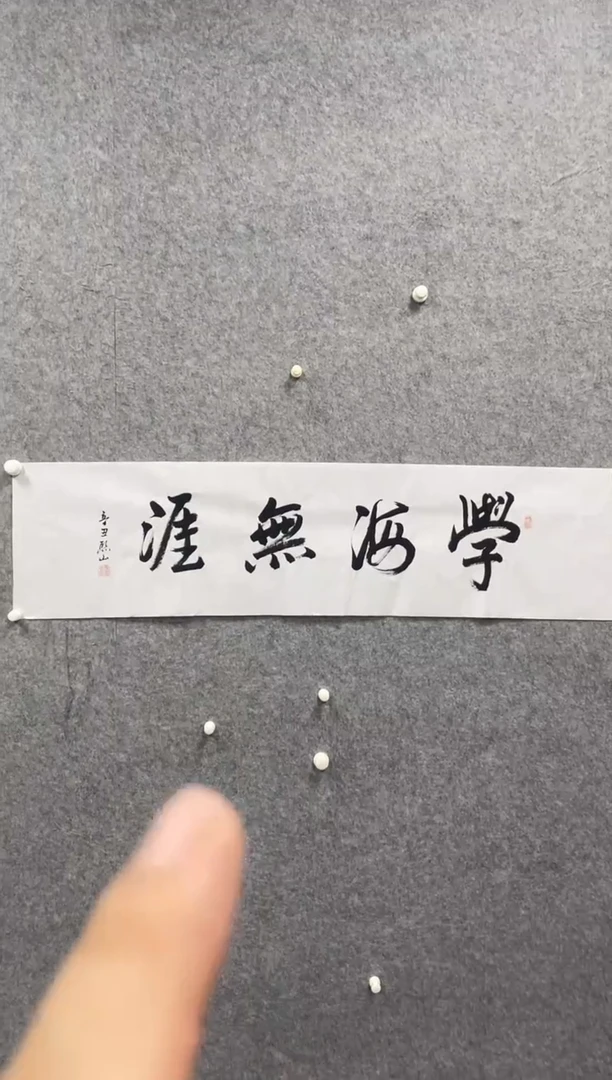 學海無涯
辛丑顏山